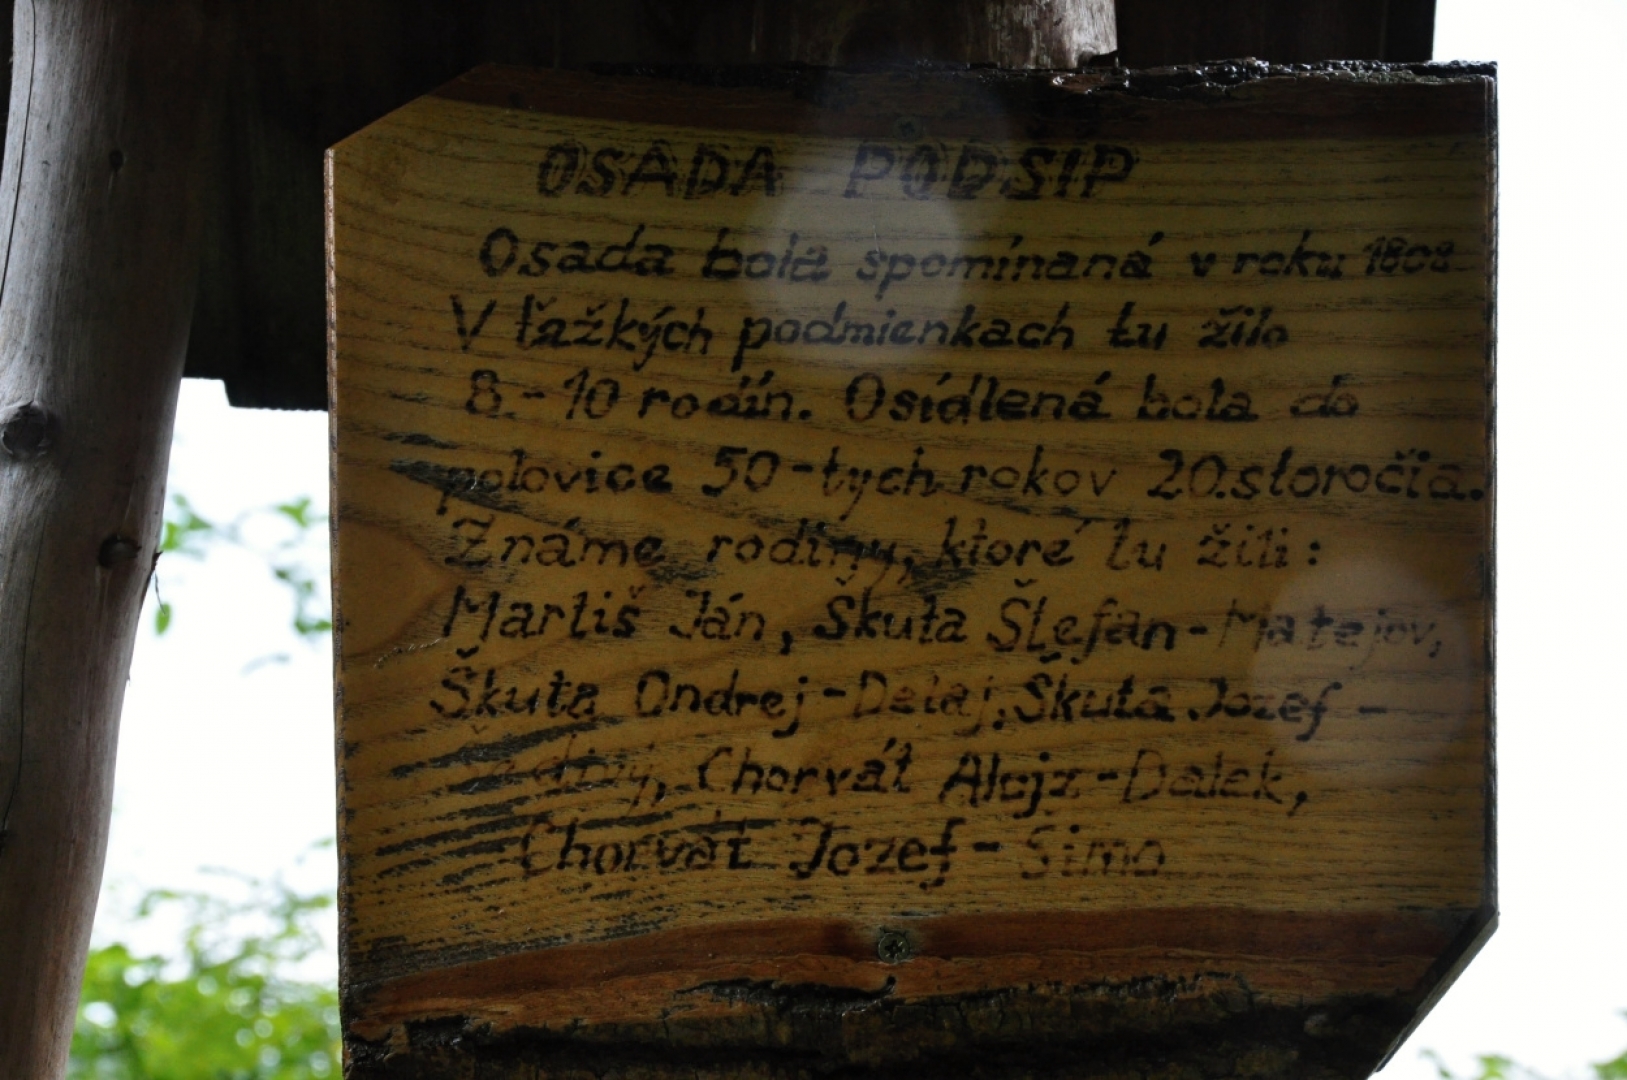 OSADA PODSIP
Osada bola spomínaná v roku 1808
V ťažkých podmienkach tu žilo
8.-10 rodín. Osídlená bola do
polovice 50-tych rokov 20.storočia.
Známe rodiny, ktoré tu žili:
Martiš Ján, Škuta Štefan-Matejov,
Škuta Ondrej-Delaj, Škuta Jozef-
Chorvát Alojz-Dalek,
Chorvát Jozef-Simo